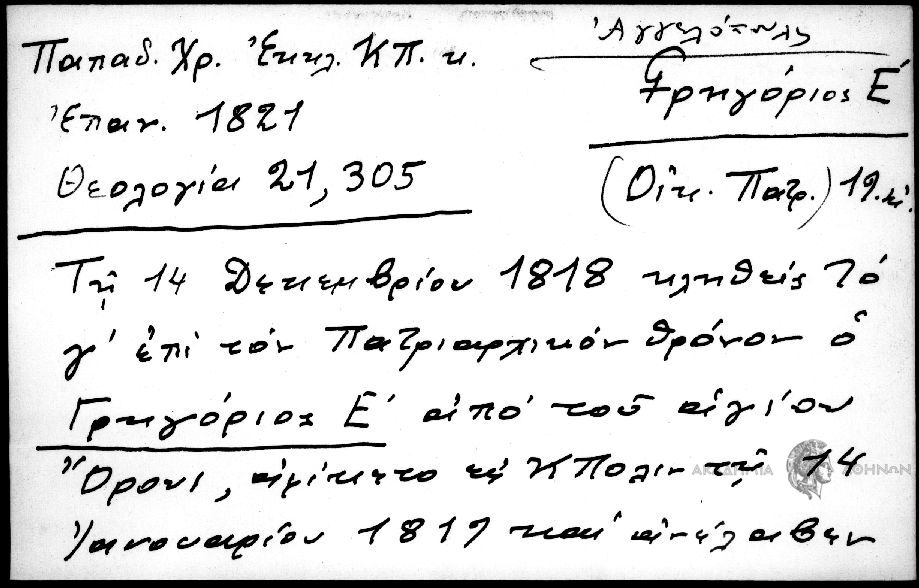 Παπαδ. Χρ. Ἐκκλ. ΚΠ. κ.
Ἐπαν. 1821
Θεολογία 21, 305
Ἀγγελόπουλος
Γρηγόριος Ε΄
(Οἰκ. Πατρ.) 19. κἑ.
Τῇ 14 Δεκεμβρίου 1818 κληθείς τό
γ΄ ἐπί τόν Πατριαρχικόν θρόνον ὁ
Γρηγόριος Ε΄ ἀπό τοῦ ἁγίου
Ὄρους, ἀφίκετο εἰς ΚΠολιν τῇ 14
Ἰανουαρίου 1819 καί ἀνέλαβεν
ΑΚΑΔΗΜΙΑ ΑΘΗΝΩΝ